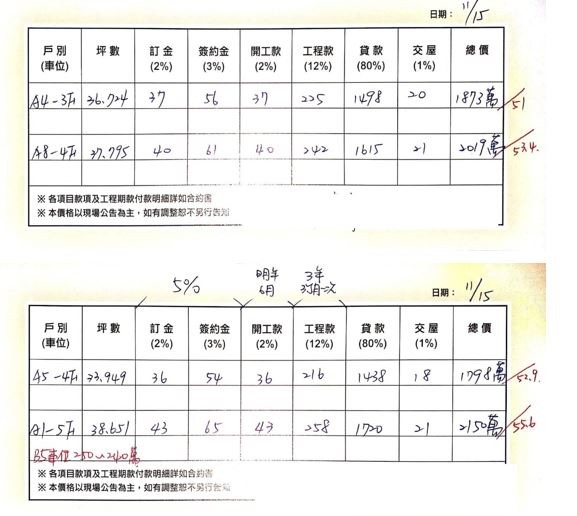 日期: 11/15
戶別(車位) 坪數 訂金(2%) 簽約金(3%) 開工款(2%) 工程款(12%) 貸款(80%) 交屋(1%) 總價
A4-3F 36.724 37 56 37 225 1498 20 1873萬 /51
A8-4F 37.795 40 61 40 242 1615 21 2019萬 /53.4.
※ 各項目款項及工程期付款明細詳如合約書
※ 本價格以現場公告為主，如有調整恕不另行告知
5% 明年6月 3年3個月一次
日期: 11/15
戶別(車位) 坪數 訂金(2%) 簽約金(3%) 開工款(2%) 工程款(12%) 貸款(80%) 交屋(1%) 總價
A5-4F 33.949 36 54 36 216 1438 18 1798萬 /52.9.
A1-5F 38.651 43 65 43 258 1720 21 2150萬 /55.6
B5車位 250~240萬
※ 各項目款項及工程期付款明細詳如合約書
※ 本價格以現場公告為主，如有調整恕不另行告知